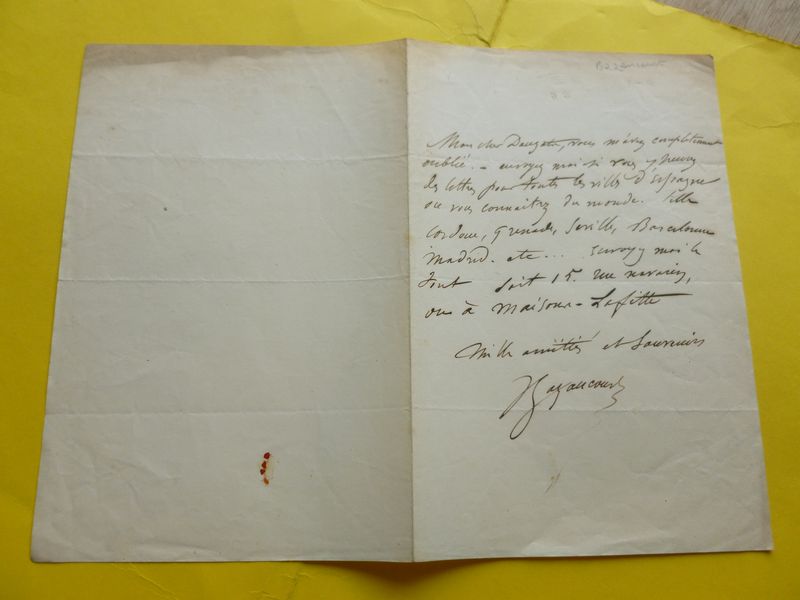 Bazancourt
Mon cher Dauzats, vous m'avez complètement
oublié. - envoyez moi si vous y pensez
des lettres pour toutes les villes d'Espagne
où vous connaitrez du monde. 
Cordoue, Grenade, Séville, Barcelonne
Madrid. etc... Envoyez moi le
tout soit 15. rue navarin,
ou à Maisons-Lafitte
Mille amitiés et Souvenirs
Bazancourt